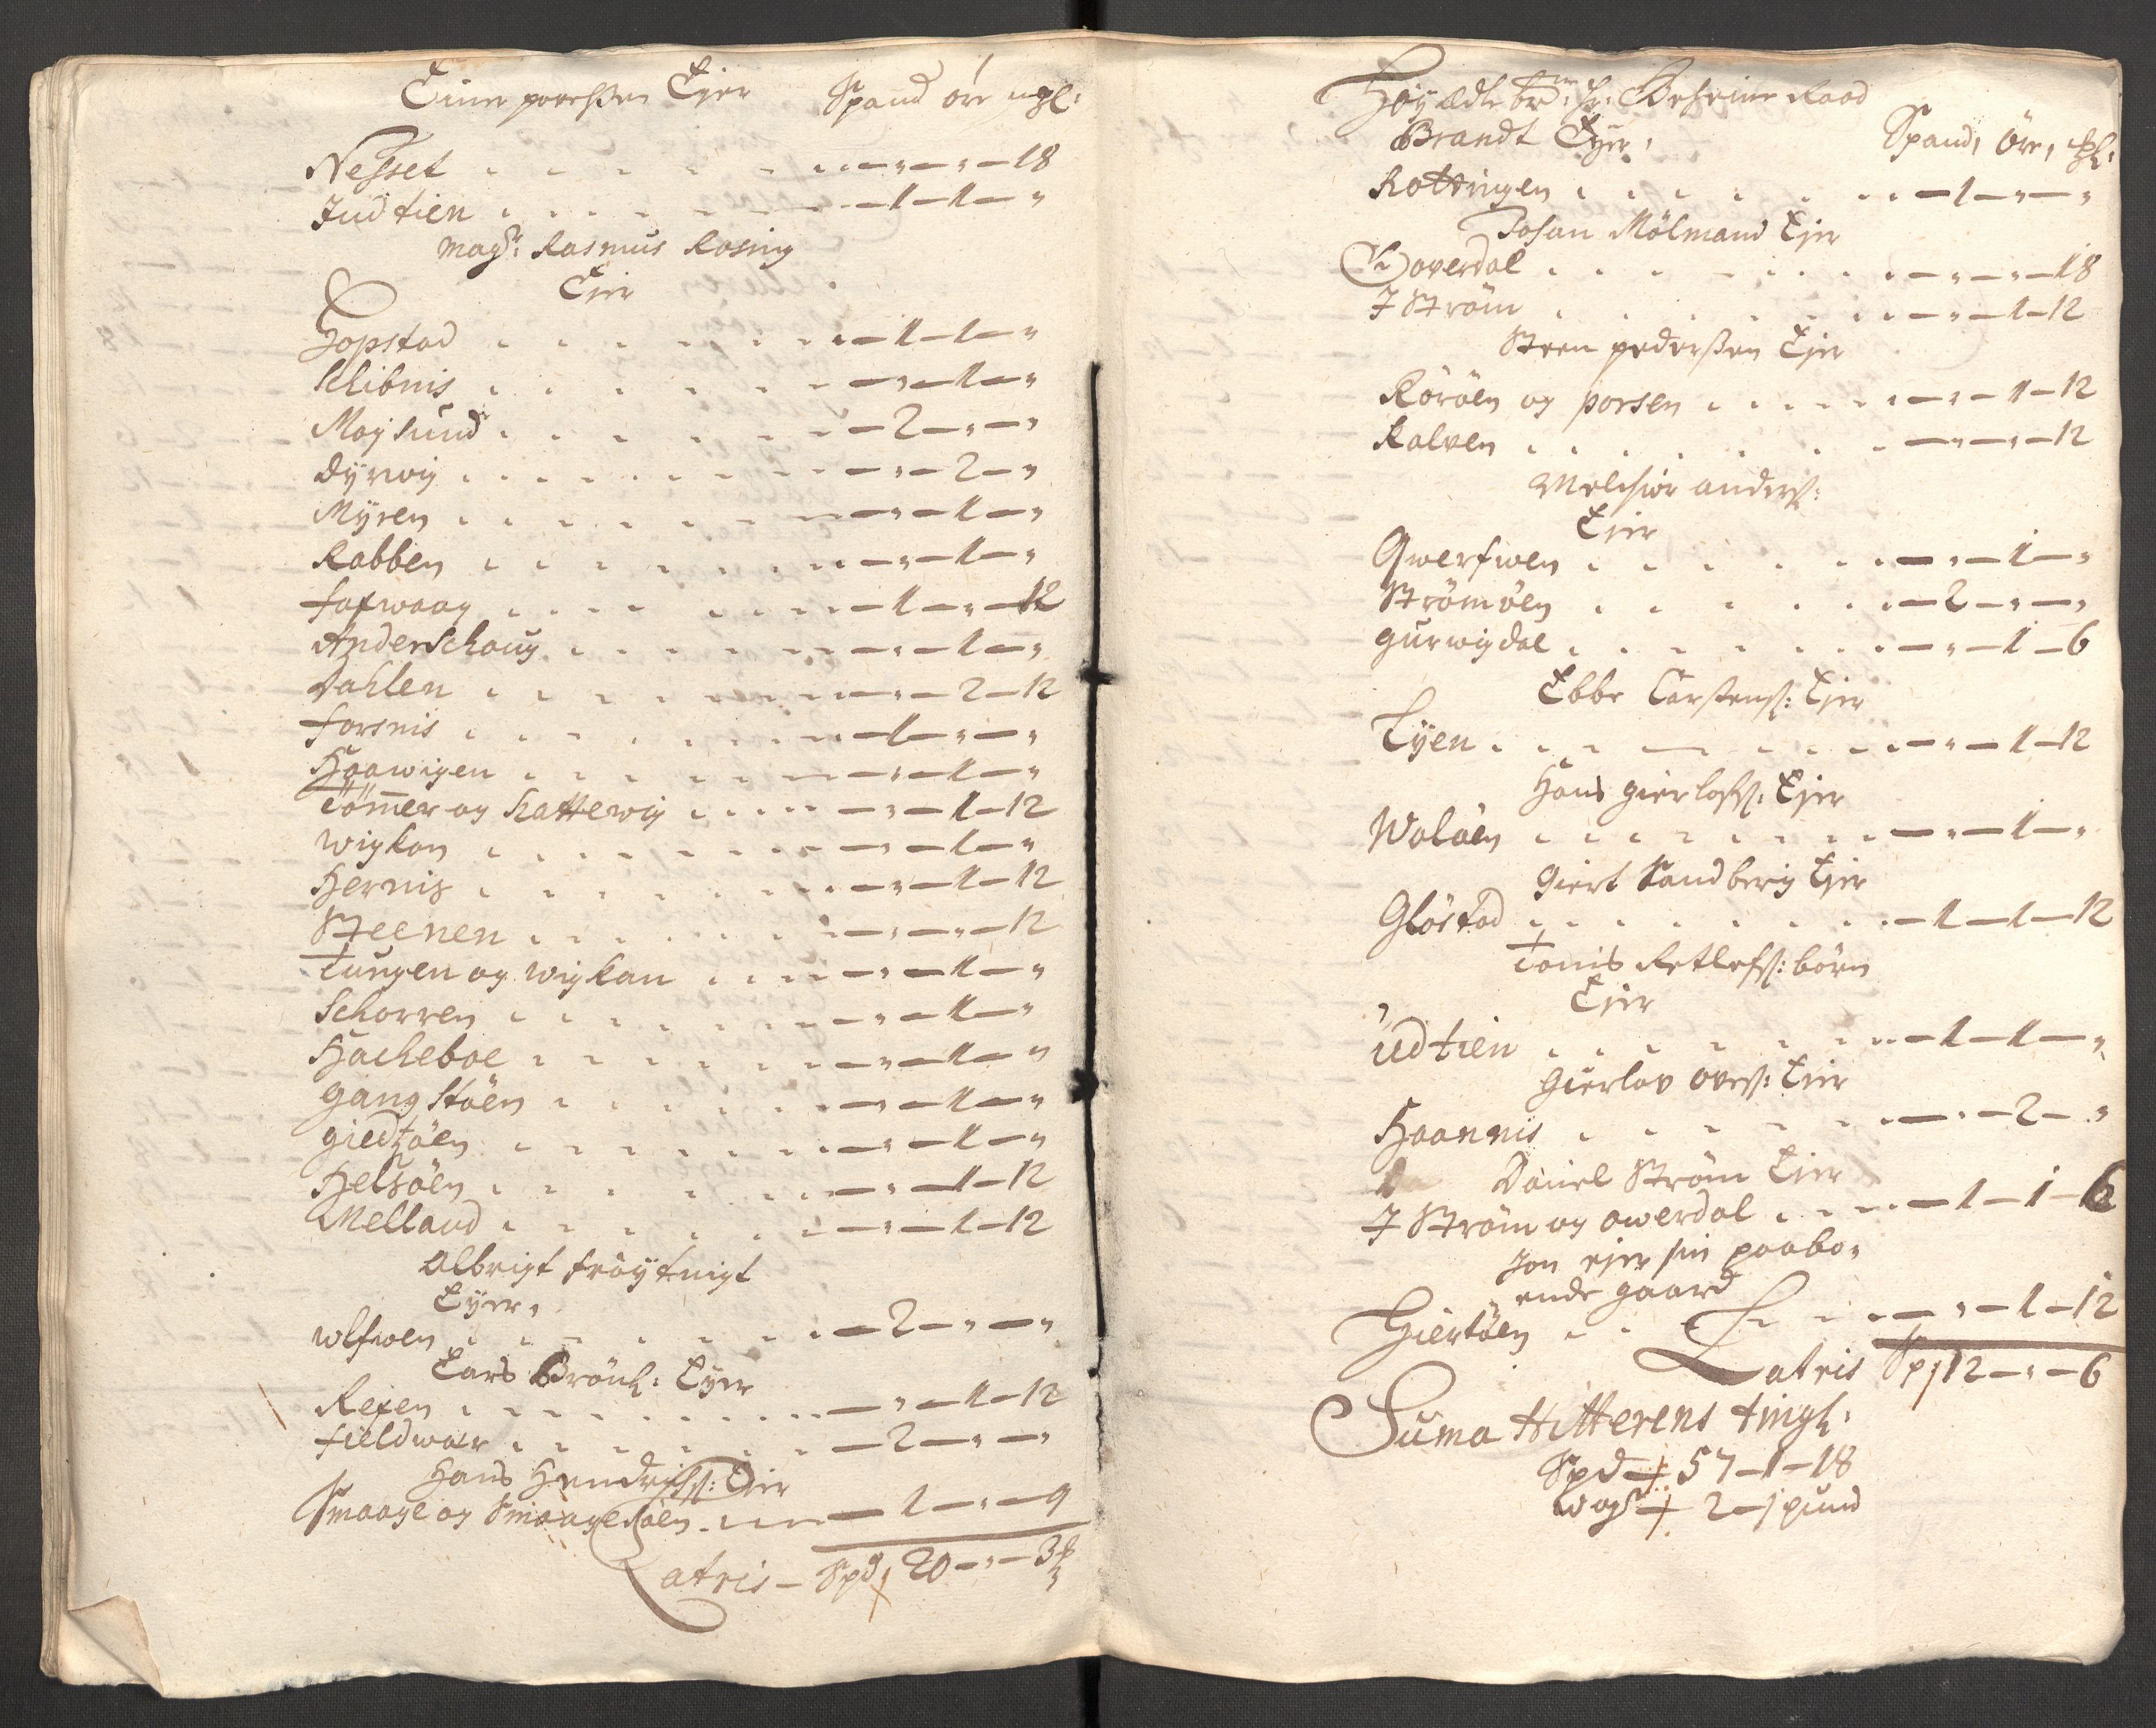 Einer povelsen Ejer Spand öre mgl:
Nesset . . . . . . – „ – „ – 18
Judtien . . . . . . – 1 – 1 – „
magr: Rasmus Rosing
Ejer
Hopstad . . . . . . – 1 – 1 – „
Schibnis . . . . . . – „ – 1 – „
Moysund . . . . . . – 2 – „ – „
dyrwig . . . . . . – „ – 2 – „
Myren . . . . . . – „ – 1 – „
Rabben . . . . . . – „ – 1 – „
faxwaag . . . . . . – 1 – „ – 12
Anderschoug . . . . . . – „ – 1 – „
Dahlen . . . . . . – „ – 2 – 12
forsnis . . . . . . – 1 – „ – „
Haawigen . . . . . . – „ – 1 – „
Tömer og hattewig . . . . – „ – 1 – 12
wigkan . . . . . . – „ – 1 – „
Hernis . . . . . . – „ – 1 – 12
Steenen . . . . . . – „ – „ – 12
Tungen og wigkan . . . . – „ – 1 – „
Schorren . . . . . . – „ – 1 – „
Hacheboe . . . . . . – „ – 1 – „
gangstöen . . . . . . – „ – 1 – „
giedtöen . . . . . . – „ – 1 – „
Helsöen . . . . . . – „ – 1 – 12
Melland . . . . . . – „ – 1 – 12
Albrigt fröytnigt
Eyer,
wlfwen . . . . . . – 2 – „ – „
Lars Brönl: Eyer
Rexen . . . . . . – „ – 1 – 12
fieldwær . . . . . . – 2 – „ – „
Hans Hendrichs: Ejer
Smaage og Smaagesöen . . . – 1 – „ – 9
Latris – Spd 20 – „ – 3
Höy ædle hr: Geheime Raad
Brandt Eyer, Spand, öre, mgl:
Rottingen . . . . . . – 1 – „ – „
Johan Mölmand Ejer
Hoverdal . . . . . . – „ – „ – 18
J Ström . . . . . . – „ – 1 – 12
Steen pedersen Ejer
Röröen og porsen . . . . – „ – 1 – 12
Kalven . . . . . . – „ – „ – 12
Melchior anders:
Ejer
Qwerfwen . . . . . . – „ – 1 – „
Strömöen . . . . . . – 2 – „ – „
gurwigdal . . . . . . – „ – 1 – 6
Ebbe Carstens: Ejer
Eyen . . . . . . – „ – 1 – 12
Hans gierlofs: Ejer
Woläen . . . . . . – „ – 1 – „
Giert Sandberg Ejer
Glöstad . . . . . . – 1 – 1 – 12
Tönis Retlefs: börn
Ejer
Udtien . . . . . . – 1 – 1 – „
Gierlov oves: Ejer
Haannis . . . . . . – „ – 2 – „
Daniel Ström Ejer
J Ström og owerdal . . . . – 1 – 1 – 6
Jon ejer sin paabo„
ende gaard
Giertöen . . . . . – „ – 1 – 12
Latris Sp 12 – „ – 6
Suma Hitterens tingl:
Spd – 57 – 1 – 18
wogr – 2 – 1 pund